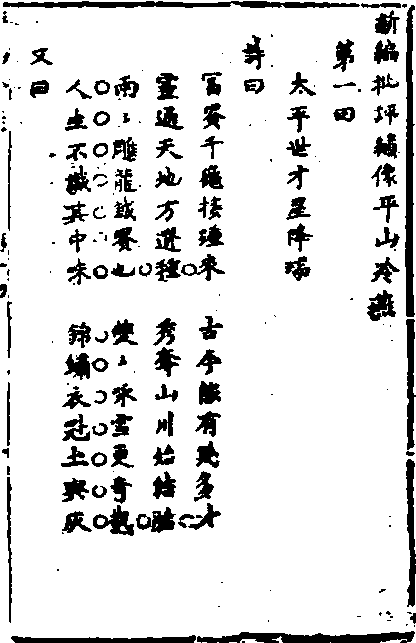 新編批評繡像平山冷燕
第一回
太平世才星降瑞
詩曰
冨貴千軀接踵來 古今能有幾多才
靈通天地方遺種 秀奪山川始結胎
兩〻雕龍誠貴也 雙〻咏雪更奇哉
人生不識其中味 錦繡衣冠土與灰
又曰